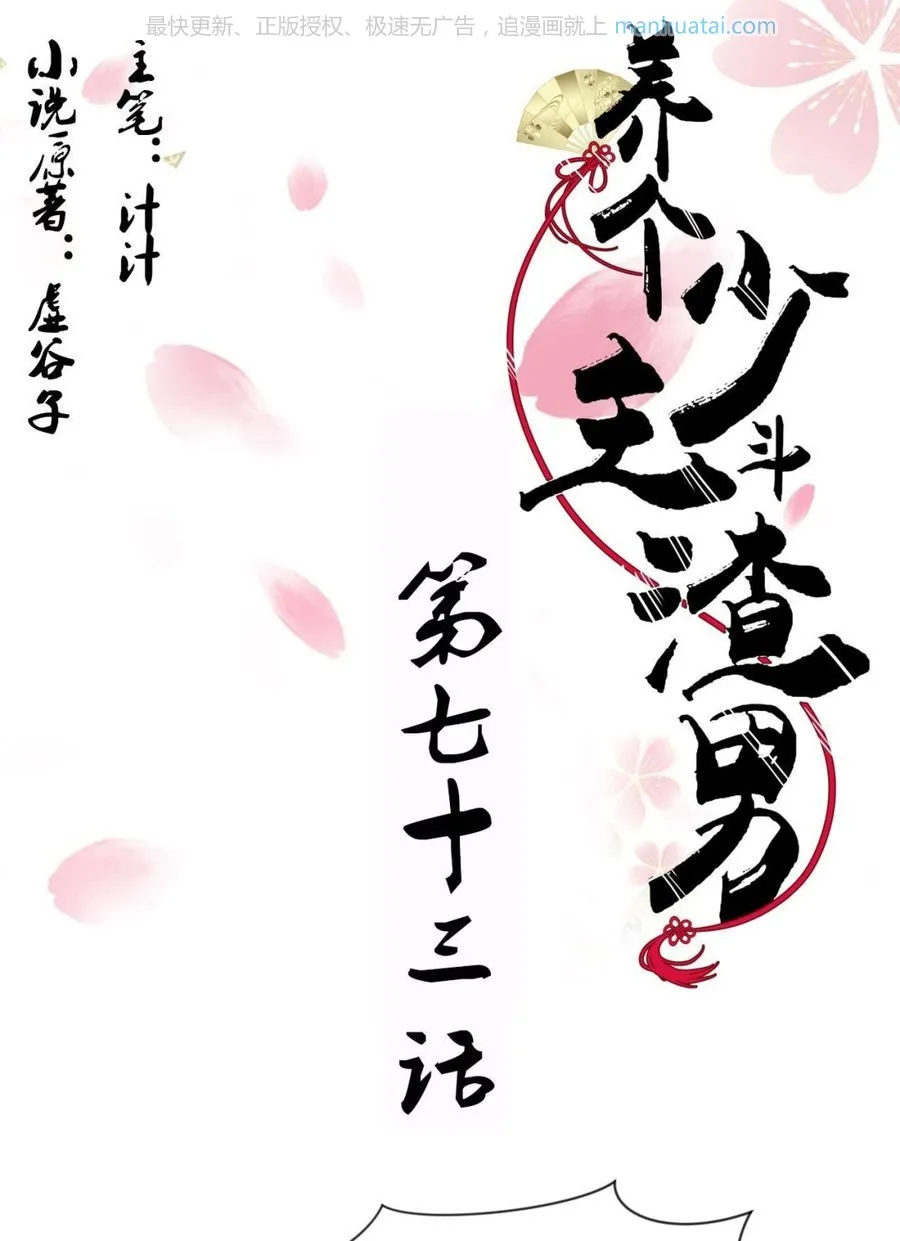 最快更新、正版授权、极速无广告，追漫画就上 manhuatai.com
养个少主斗渣男
第七十三话
主笔：汁汁
小说原著：虚谷子